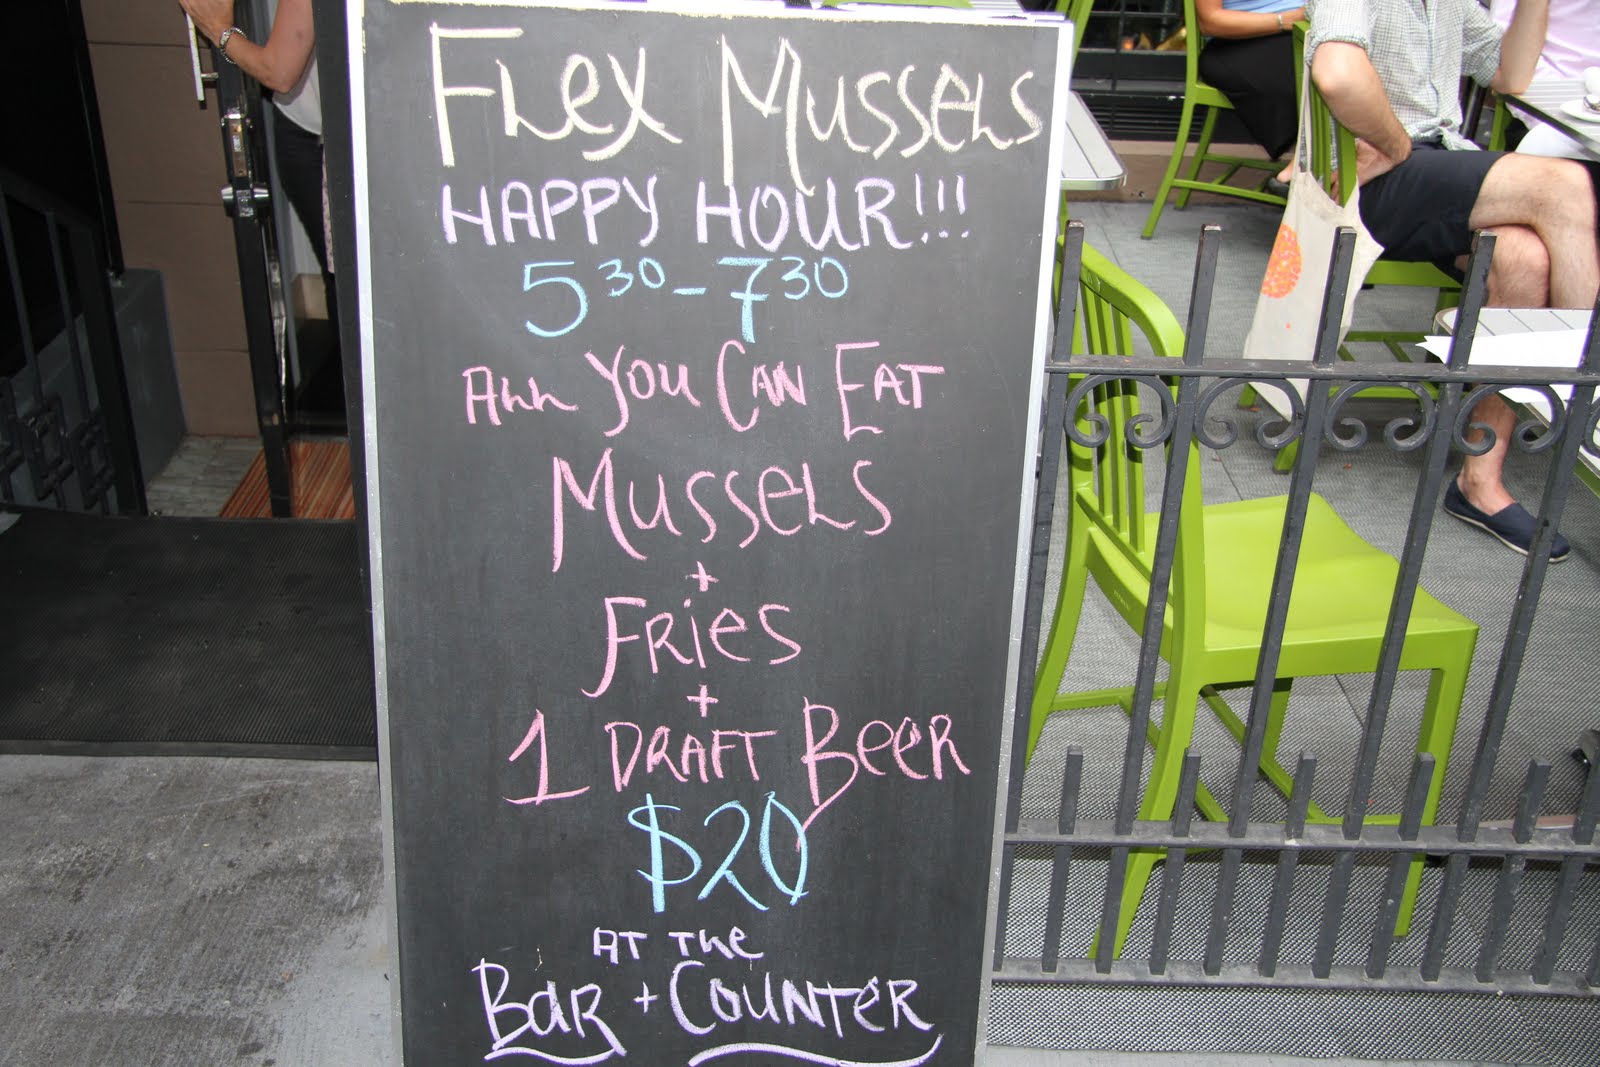 Flex Mussels
HAPPY HOUR!!!
5 30 - 7 30
All You Can Eat
Mussels
+
Fries
+
1 DRAFT Beer
$20
AT The
Bar + Counter